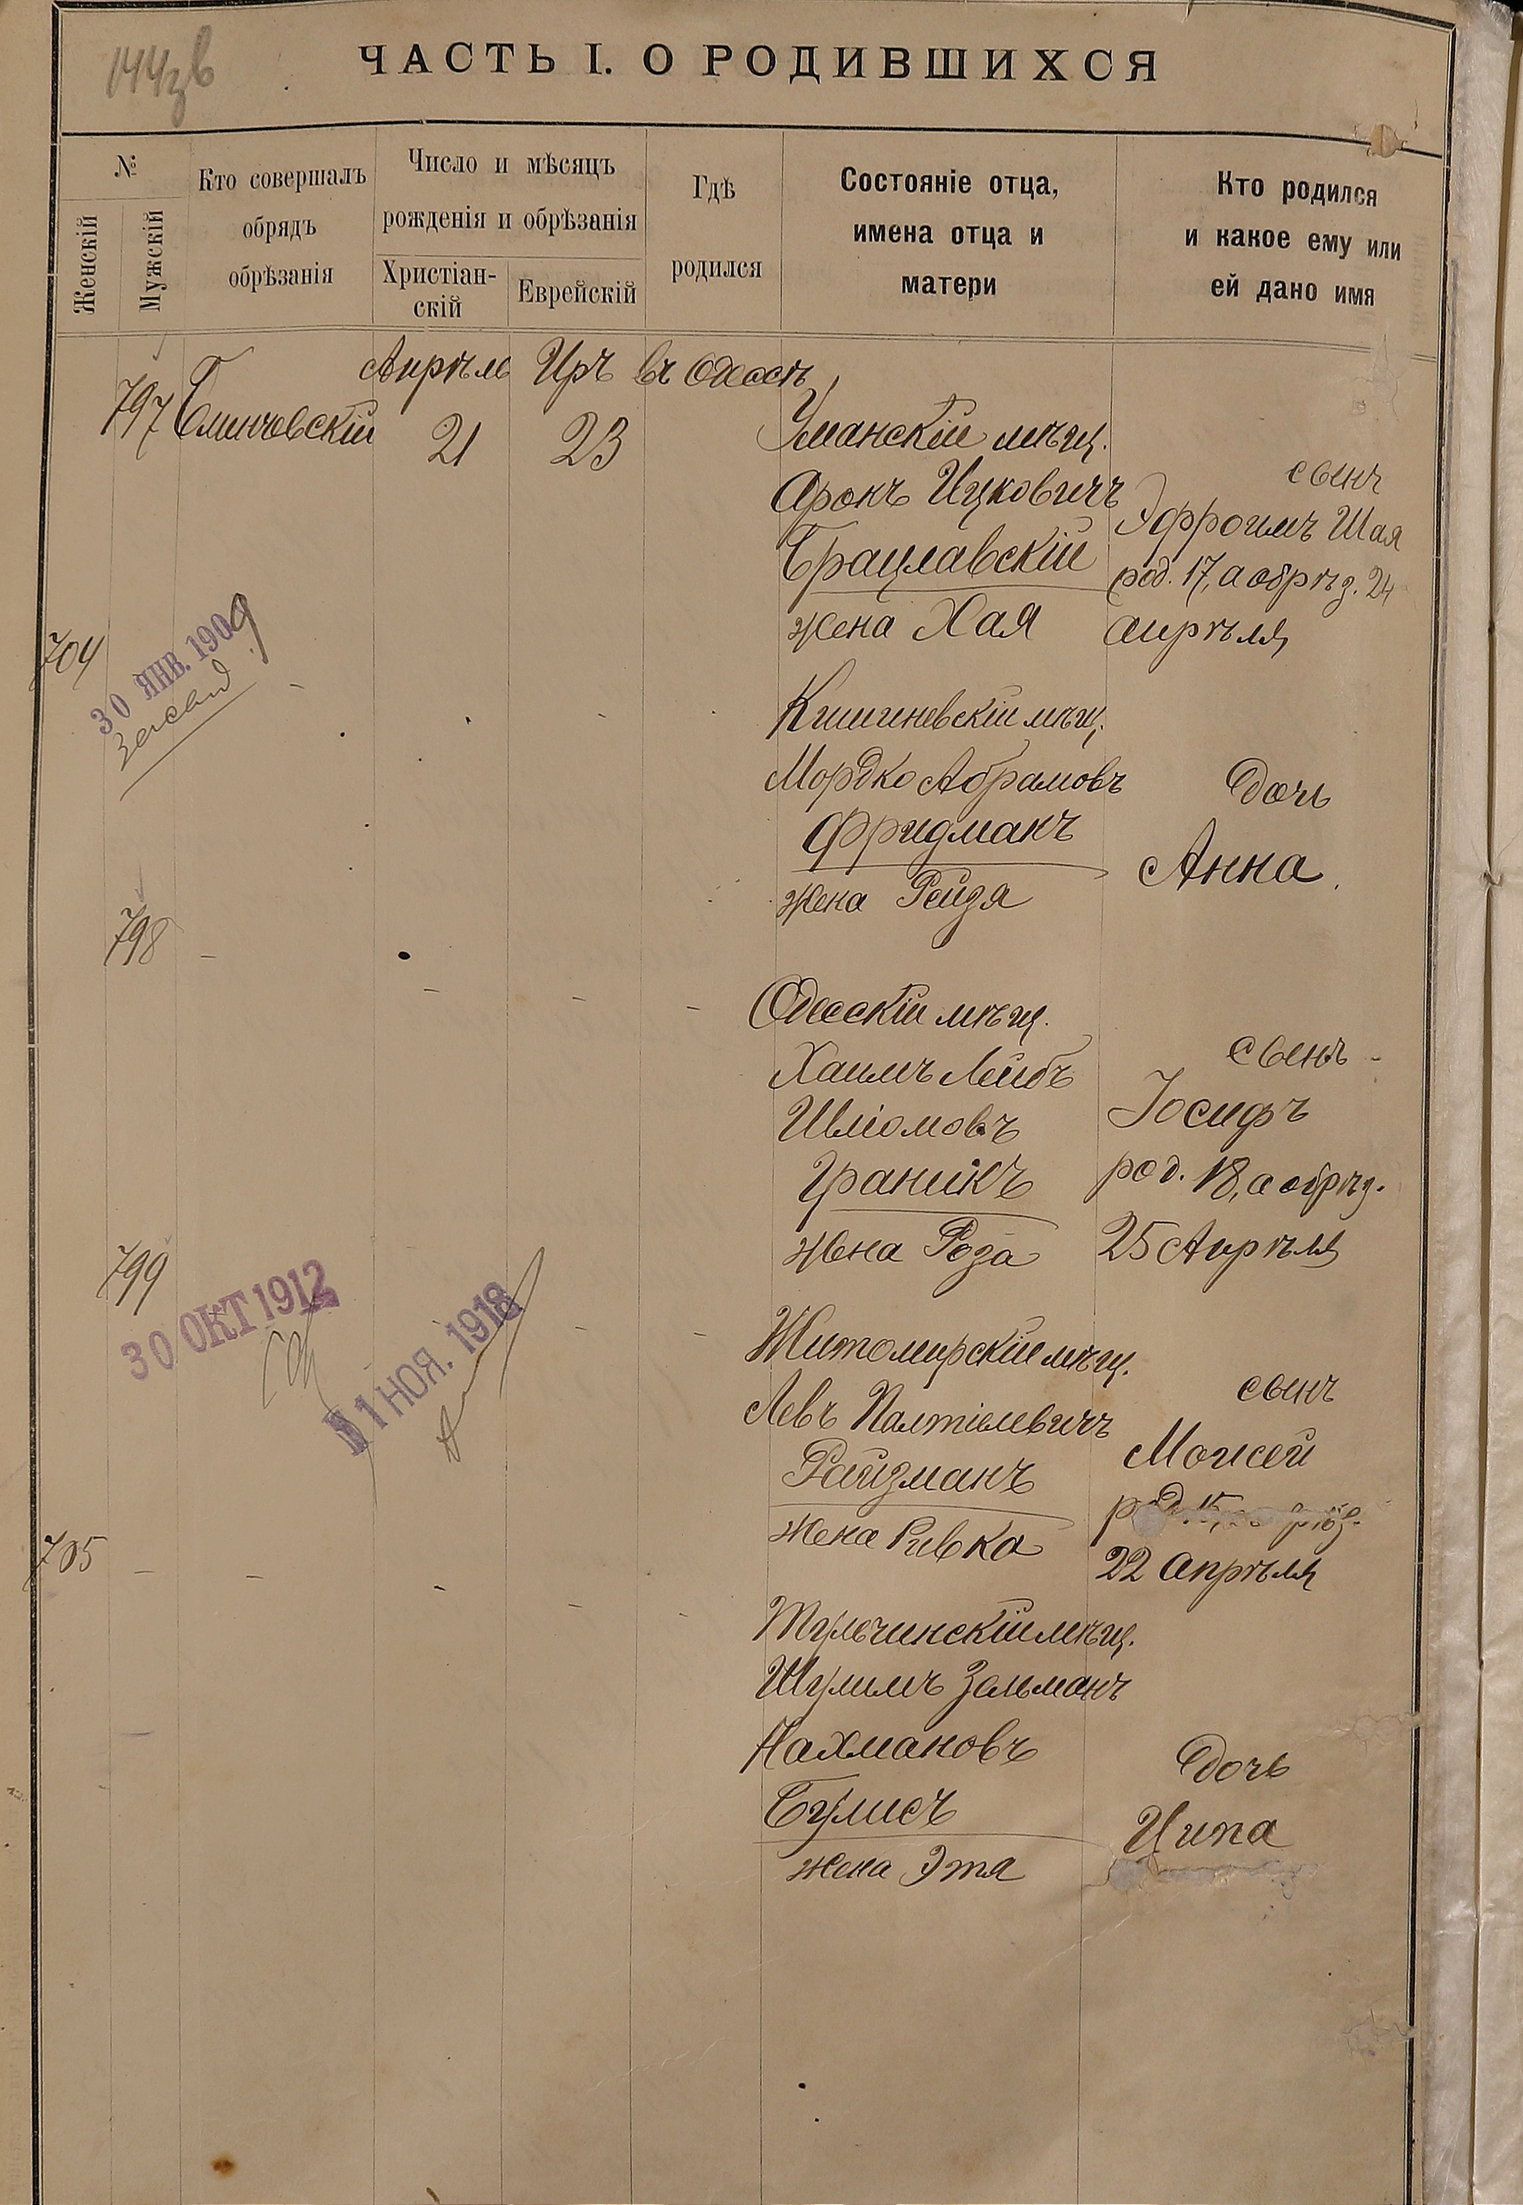 144зв
ЧАСТЬ I. О РОДИВШИХСЯ
№
Женскій
Мужскій
Кто совершалъ
обрядъ
обрѣзанія
Число и мѣсяцъ
рожденія и обрѣзанія
Христіан-
скій
Еврейскій
Гдѣ
родился
Состояніе отца,
имена отца и
матери
Кто родился
и какое ему или
ей дано имя
Апрѣль Иръ въ Одессѣ
797
21 23
Уманскій мѣщ.
Аронъ Ицковичъ
Брацлавскій
жена Хая
сынъ
Эфроимъ Шая
род. 17, а обрѣз. 24
апрѣля
704
30 ЯНВ. 1909
Кишиневскій мѣщ.
Мордко Абрамовъ
Фридманъ
жена Рейзя
дочь
Анна
798
Одесскій мѣщ.
Хаимъ Лейбъ
Шліомовъ
Граникъ
жена Роза
сынъ
Іосифъ
род. 18, а обрѣз.
25 Апрѣля
799
30 ОКТ 1912
1 НОЯ. 1918
Житомирскій мѣщ.
Левъ Палтіелевичъ
Райзманъ
жена Ривка
сынъ
Моисей
род. 15, а обрѣз.
22 апрѣля
705
Тульчинскій мѣщ.
Шулимъ Зельманъ
Нахмановъ
Булисъ
жена Этя
дочь
Ципа